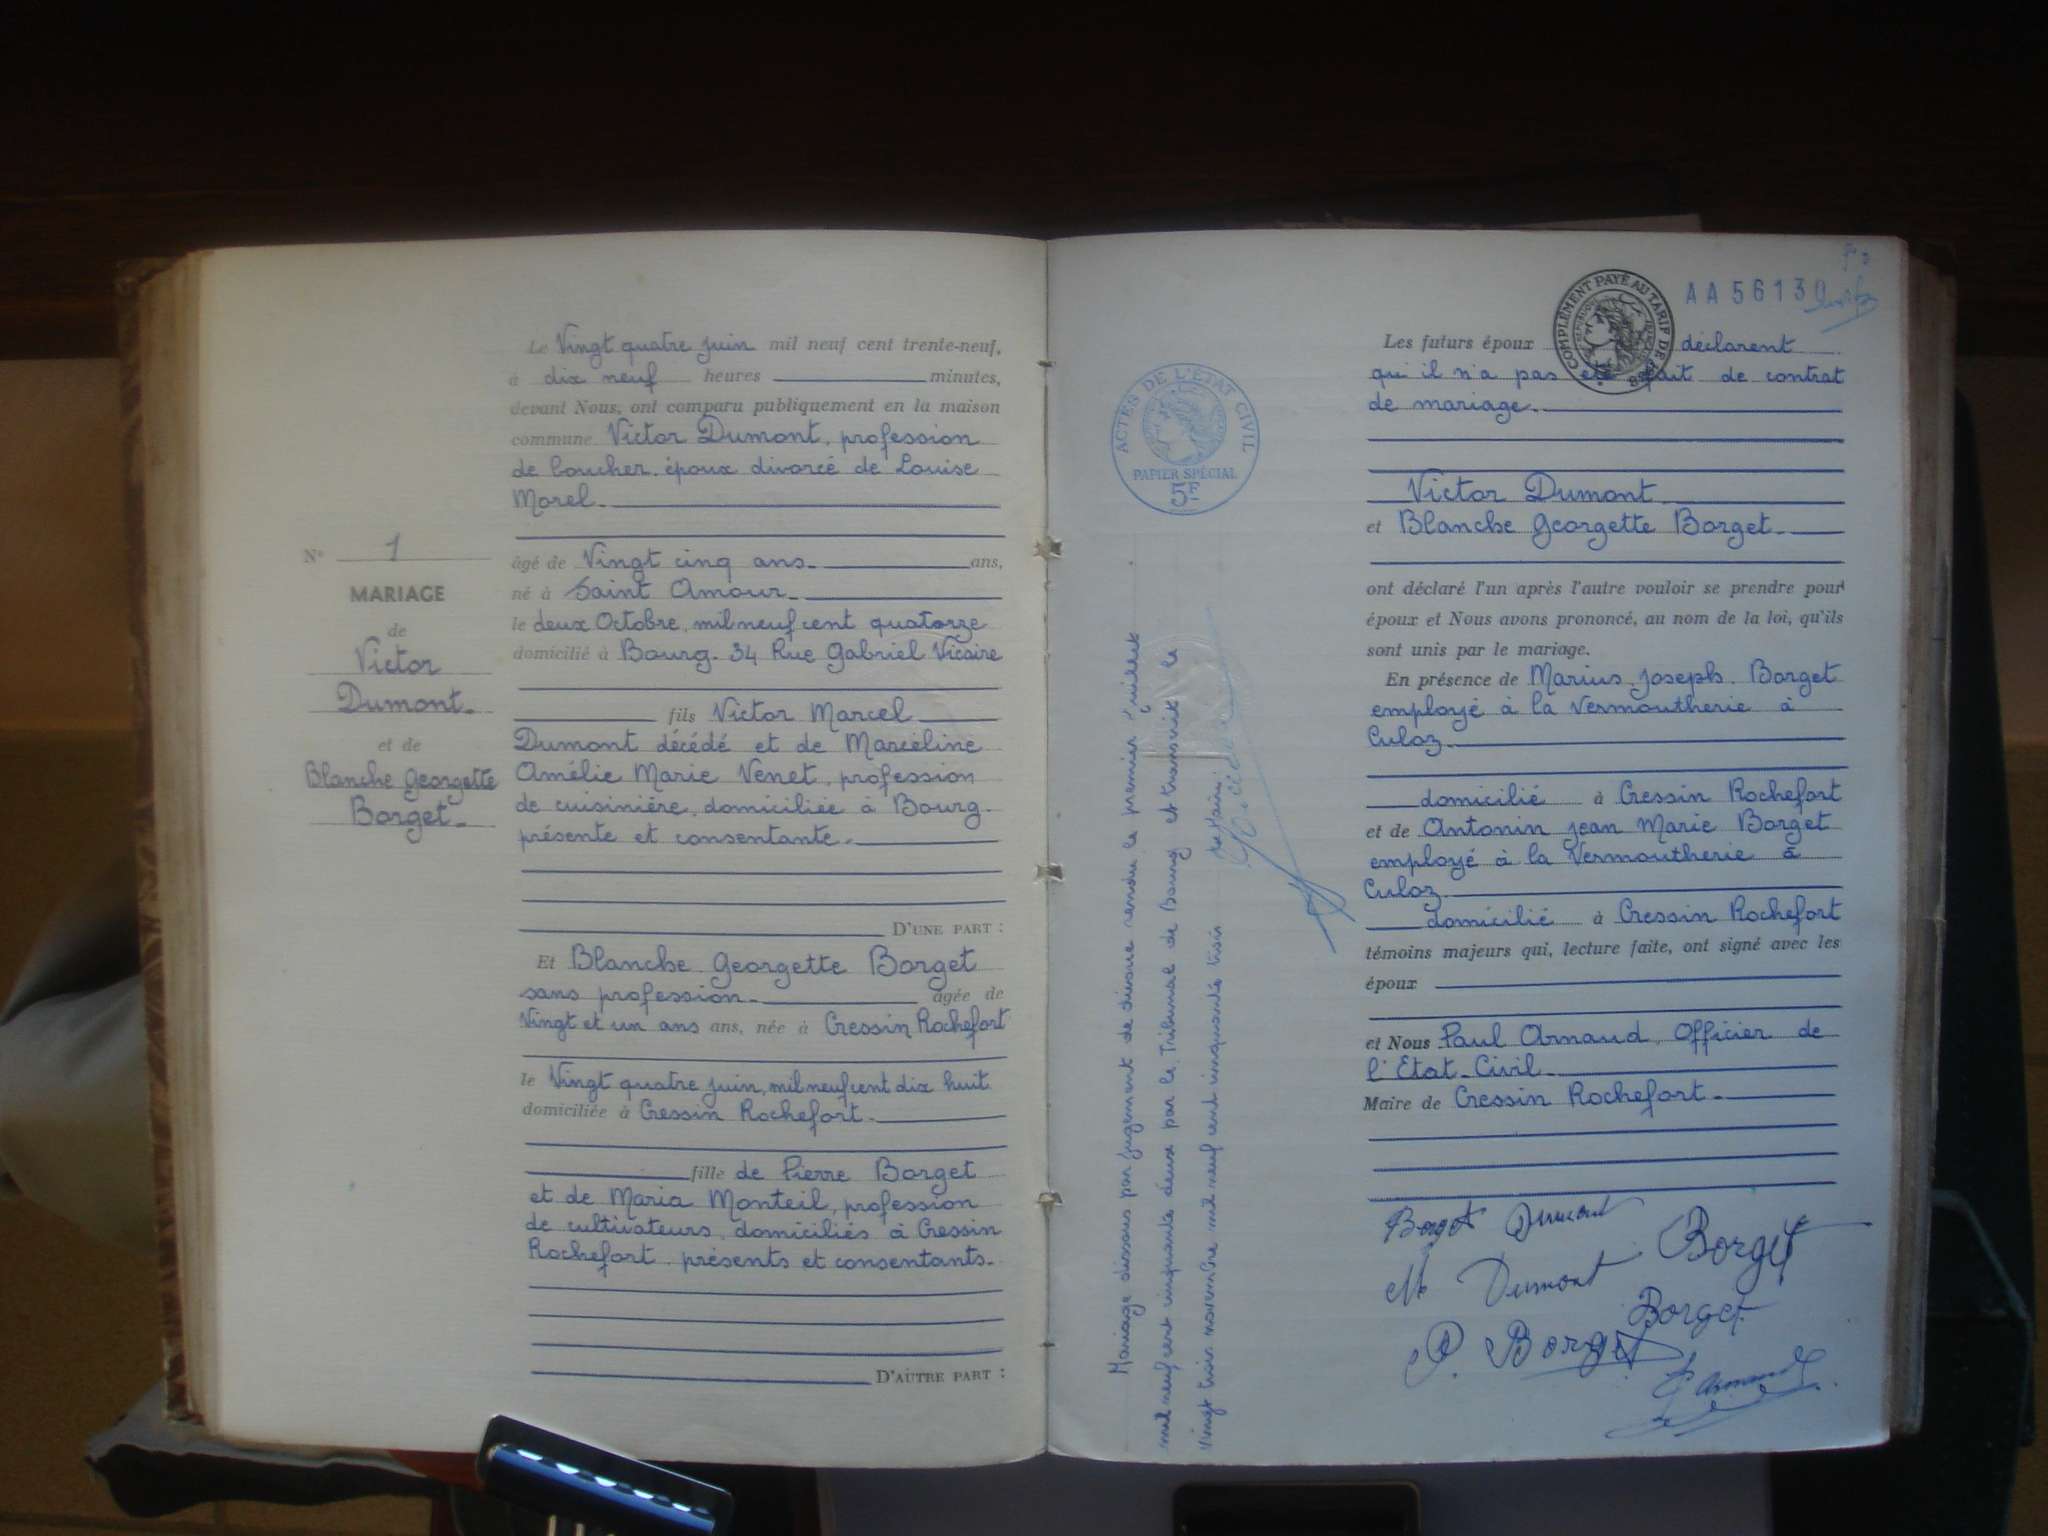 Le Vingt quatre juin mil neuf cent trente-neuf,
à dix neuf heures minutes,
devant Nous, ont comparu publiquement en la maison
commune Victor Dumont, profession
de boucher. époux divorcé de Louise
Morel.
N° 1
MARIAGE
de
Victor
Dumont.
et de
Blanche Georgette
Borget.
âgé de Vingt cinq ans. ans,
né à Saint Amour.
le deux Octobre, mil neuf cent quatorze
domicilié à Bourg. 34 Rue Gabriel Vicaire
fils Victor Marcel
Dumont décédé et de Marceline
Amélie Marie Venet, profession
de cuisinière, domiciliée à Bourg.
présente et consentante.
D'UNE PART :
Et Blanche Georgette Borget
sans profession. âgée de
Vingt et un ans ans, née à Cressin Rochefort
le Vingt quatre juin, mil neuf cent dix huit
domiciliée à Cressin Rochefort.
fille de Pierre Borget
et de Maria Monteil, profession
de cultivateurs, domiciliés à Cressin
Rochefort. présents et consentants.
D'AUTRE PART :
ACTES DE L'ÉTAT CIVIL
PAPIER SPÉCIAL
5F
Mariage dissous par jugement de divorce rendu le premier juillet
mil neuf cent cinquante deux par le Tribunal de Bourg et transcrit le
Vingt trois novembre mil neuf cent cinquante trois
COMPLÉMENT PAYÉ AU TARIF DE 1938
AA 56130
Les futurs époux déclarent
qu'il n'a pas été fait de contrat
de mariage.
Victor Dumont
et Blanche Georgette Borget.
ont déclaré l'un après l'autre vouloir se prendre pour
époux et Nous avons prononcé, au nom de la loi, qu'ils
sont unis par le mariage.
En présence de Marius. Joseph. Borget
employé à la Vermoutherie à
Culoz.
domicilié à Cressin Rochefort
et de Antonin Jean Marie Borget
employé à la Vermoutherie à
Culoz
domicilié à Cressin Rochefort
témoins majeurs qui, lecture faite, ont signé avec les
époux
et Nous Paul Arnaud, Officier de
l'Etat-Civil.
Maire de Cressin Rochefort.
Borget Dumont
Borget
M Dumont
Borget
P. Borget
P. Arnaud